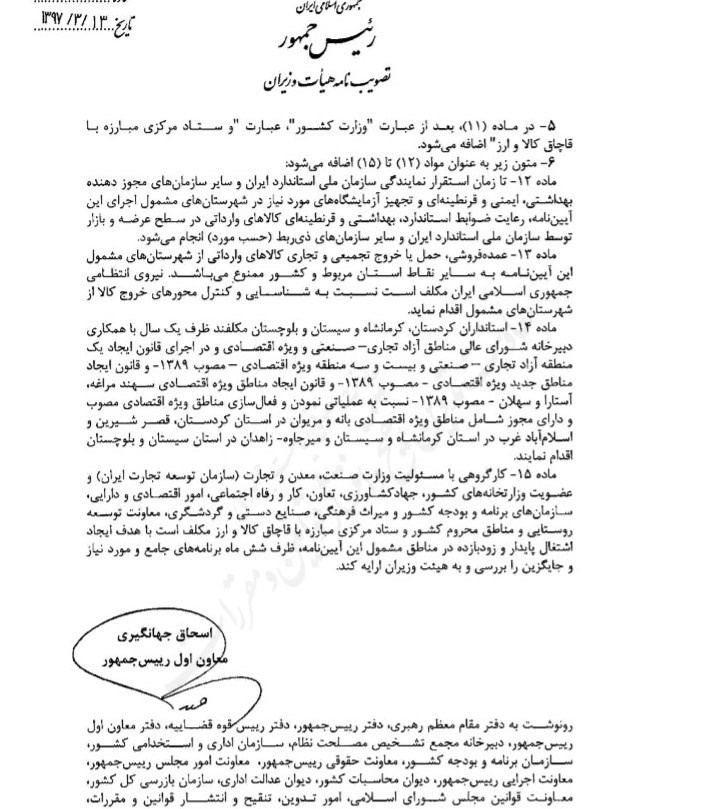 جمهوری اسلامی ایران
رئیس جمهور
تاریخ ۱۳۹۷/۳/۱۳
تصویب نامه هیأت وزیران
۵- در ماده (۱۱)، بعد از عبارت "وزارت کشور"، عبارت "و ستاد مرکزی مبارزه با
قاچاق کالا و ارز" اضافه می‌شود.
۶- متون زیر به عنوان مواد (۱۲) تا (۱۵) اضافه می‌شود:
ماده ۱۲- تا زمان استقرار نمایندگی سازمان ملی استاندارد ایران و سایر سازمان‌های مجوز دهنده
بهداشتی، ایمنی و قرنطینه‌ای و تجهیز آزمایشگاه‌های مورد نیاز در شهرستان‌های مشمول اجرای این
آیین‌نامه، رعایت ضوابط استاندارد، بهداشتی و قرنطینه‌ای کالاهای وارداتی در سطح عرضه و بازار
توسط سازمان ملی استاندارد ایران و سایر سازمان‌های ذی‌ربط (حسب مورد) انجام می‌شود.
ماده ۱۳- عمده‌فروشی، حمل یا خروج تجمیعی و تجاری کالاهای وارداتی از شهرستان‌های مشمول
این آیین‌نامه به سایر نقاط استان مربوط و کشور ممنوع می‌باشد. نیروی انتظامی
جمهوری اسلامی ایران مکلف است نسبت به شناسایی و کنترل محورهای خروج کالا از
شهرستان‌های مشمول اقدام نماید.
ماده ۱۴- استانداران کردستان، کرمانشاه و سیستان و بلوچستان مکلفند ظرف یک سال با همکاری
دبیرخانه شورای عالی مناطق آزاد تجاری– صنعتی و ویژه اقتصادی و در اجرای قانون ایجاد یک
منطقه آزاد تجاری – صنعتی و بیست و سه منطقه ویژه اقتصادی – مصوب ۱۳۸۹- و قانون ایجاد
مناطق جدید ویژه اقتصادی - مصوب ۱۳۸۹- و قانون ایجاد مناطق ویژه اقتصادی سهند مراغه،
آستارا و سهلان - مصوب ۱۳۸۹- نسبت به عملیاتی نمودن و فعال‌سازی مناطق ویژه اقتصادی مصوب
و دارای مجوز شامل مناطق ویژه اقتصادی بانه و مریوان در استان کردستان، قصر شیرین و
اسلام‌آباد غرب در استان کرمانشاه و سیستان و میرجاوه- زاهدان در استان سیستان و بلوچستان
اقدام نمایند.
ماده ۱۵- کارگروهی با مسئولیت وزارت صنعت، معدن و تجارت (سازمان توسعه تجارت ایران) و
عضویت وزارتخانه‌های کشور، جهادکشاورزی، تعاون، کار و رفاه اجتماعی، امور اقتصادی و دارایی،
سازمان‌های برنامه و بودجه کشور و میراث فرهنگی، صنایع دستی و گردشگری، معاونت توسعه
روستایی و مناطق محروم کشور و ستاد مرکزی مبارزه با قاچاق کالا و ارز مکلف است با هدف ایجاد
اشتغال پایدار و زودبازده در مناطق مشمول این آیین‌نامه، ظرف شش ماه برنامه‌های جامع و مورد نیاز
و جایگزین را بررسی و به هیئت وزیران ارایه کند.
اسحاق جهانگیری
معاون اول رییس‌جمهور
رونوشت به دفتر مقام معظم رهبری، دفتر رییس‌جمهور، دفتر رییس قوه قضاییه، دفتر معاون اول
رییس‌جمهور، دبیرخانه مجمع تشخیص مصلحت نظام، سازمان اداری و استخدامی کشور،
سازمان برنامه و بودجه کشور، معاونت حقوقی رییس‌جمهور، معاونت امور مجلس رییس‌جمهور،
معاونت اجرایی رییس‌جمهور، دیوان محاسبات کشور، دیوان عدالت اداری، سازمان بازرسی کل کشور،
معاونت قوانین مجلس شورای اسلامی، امور تدوین، تنقیح و انتشار قوانین و مقررات،